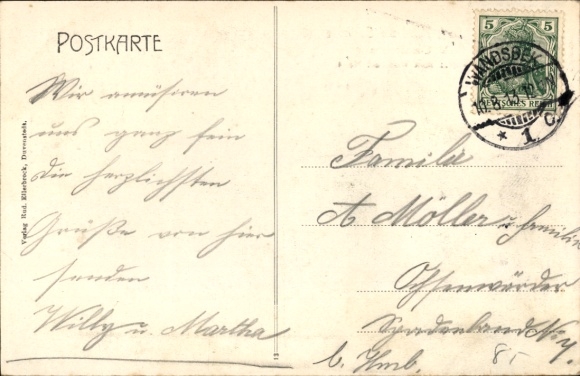 POSTKARTE
Wir amüsiren
uns ganz fein
die herzlichsten
Grüße von hier
senden
Willy u. Martha
Verlag Rud. Ellerbrock, Duvenstedt.
5 5
DEUTSCHES REICH
WANDSBEK
10.8.13.12
* 1 c
Familie
A Möller u Familie
Ochsenwärder
Spadenland
b. Hmb.
85